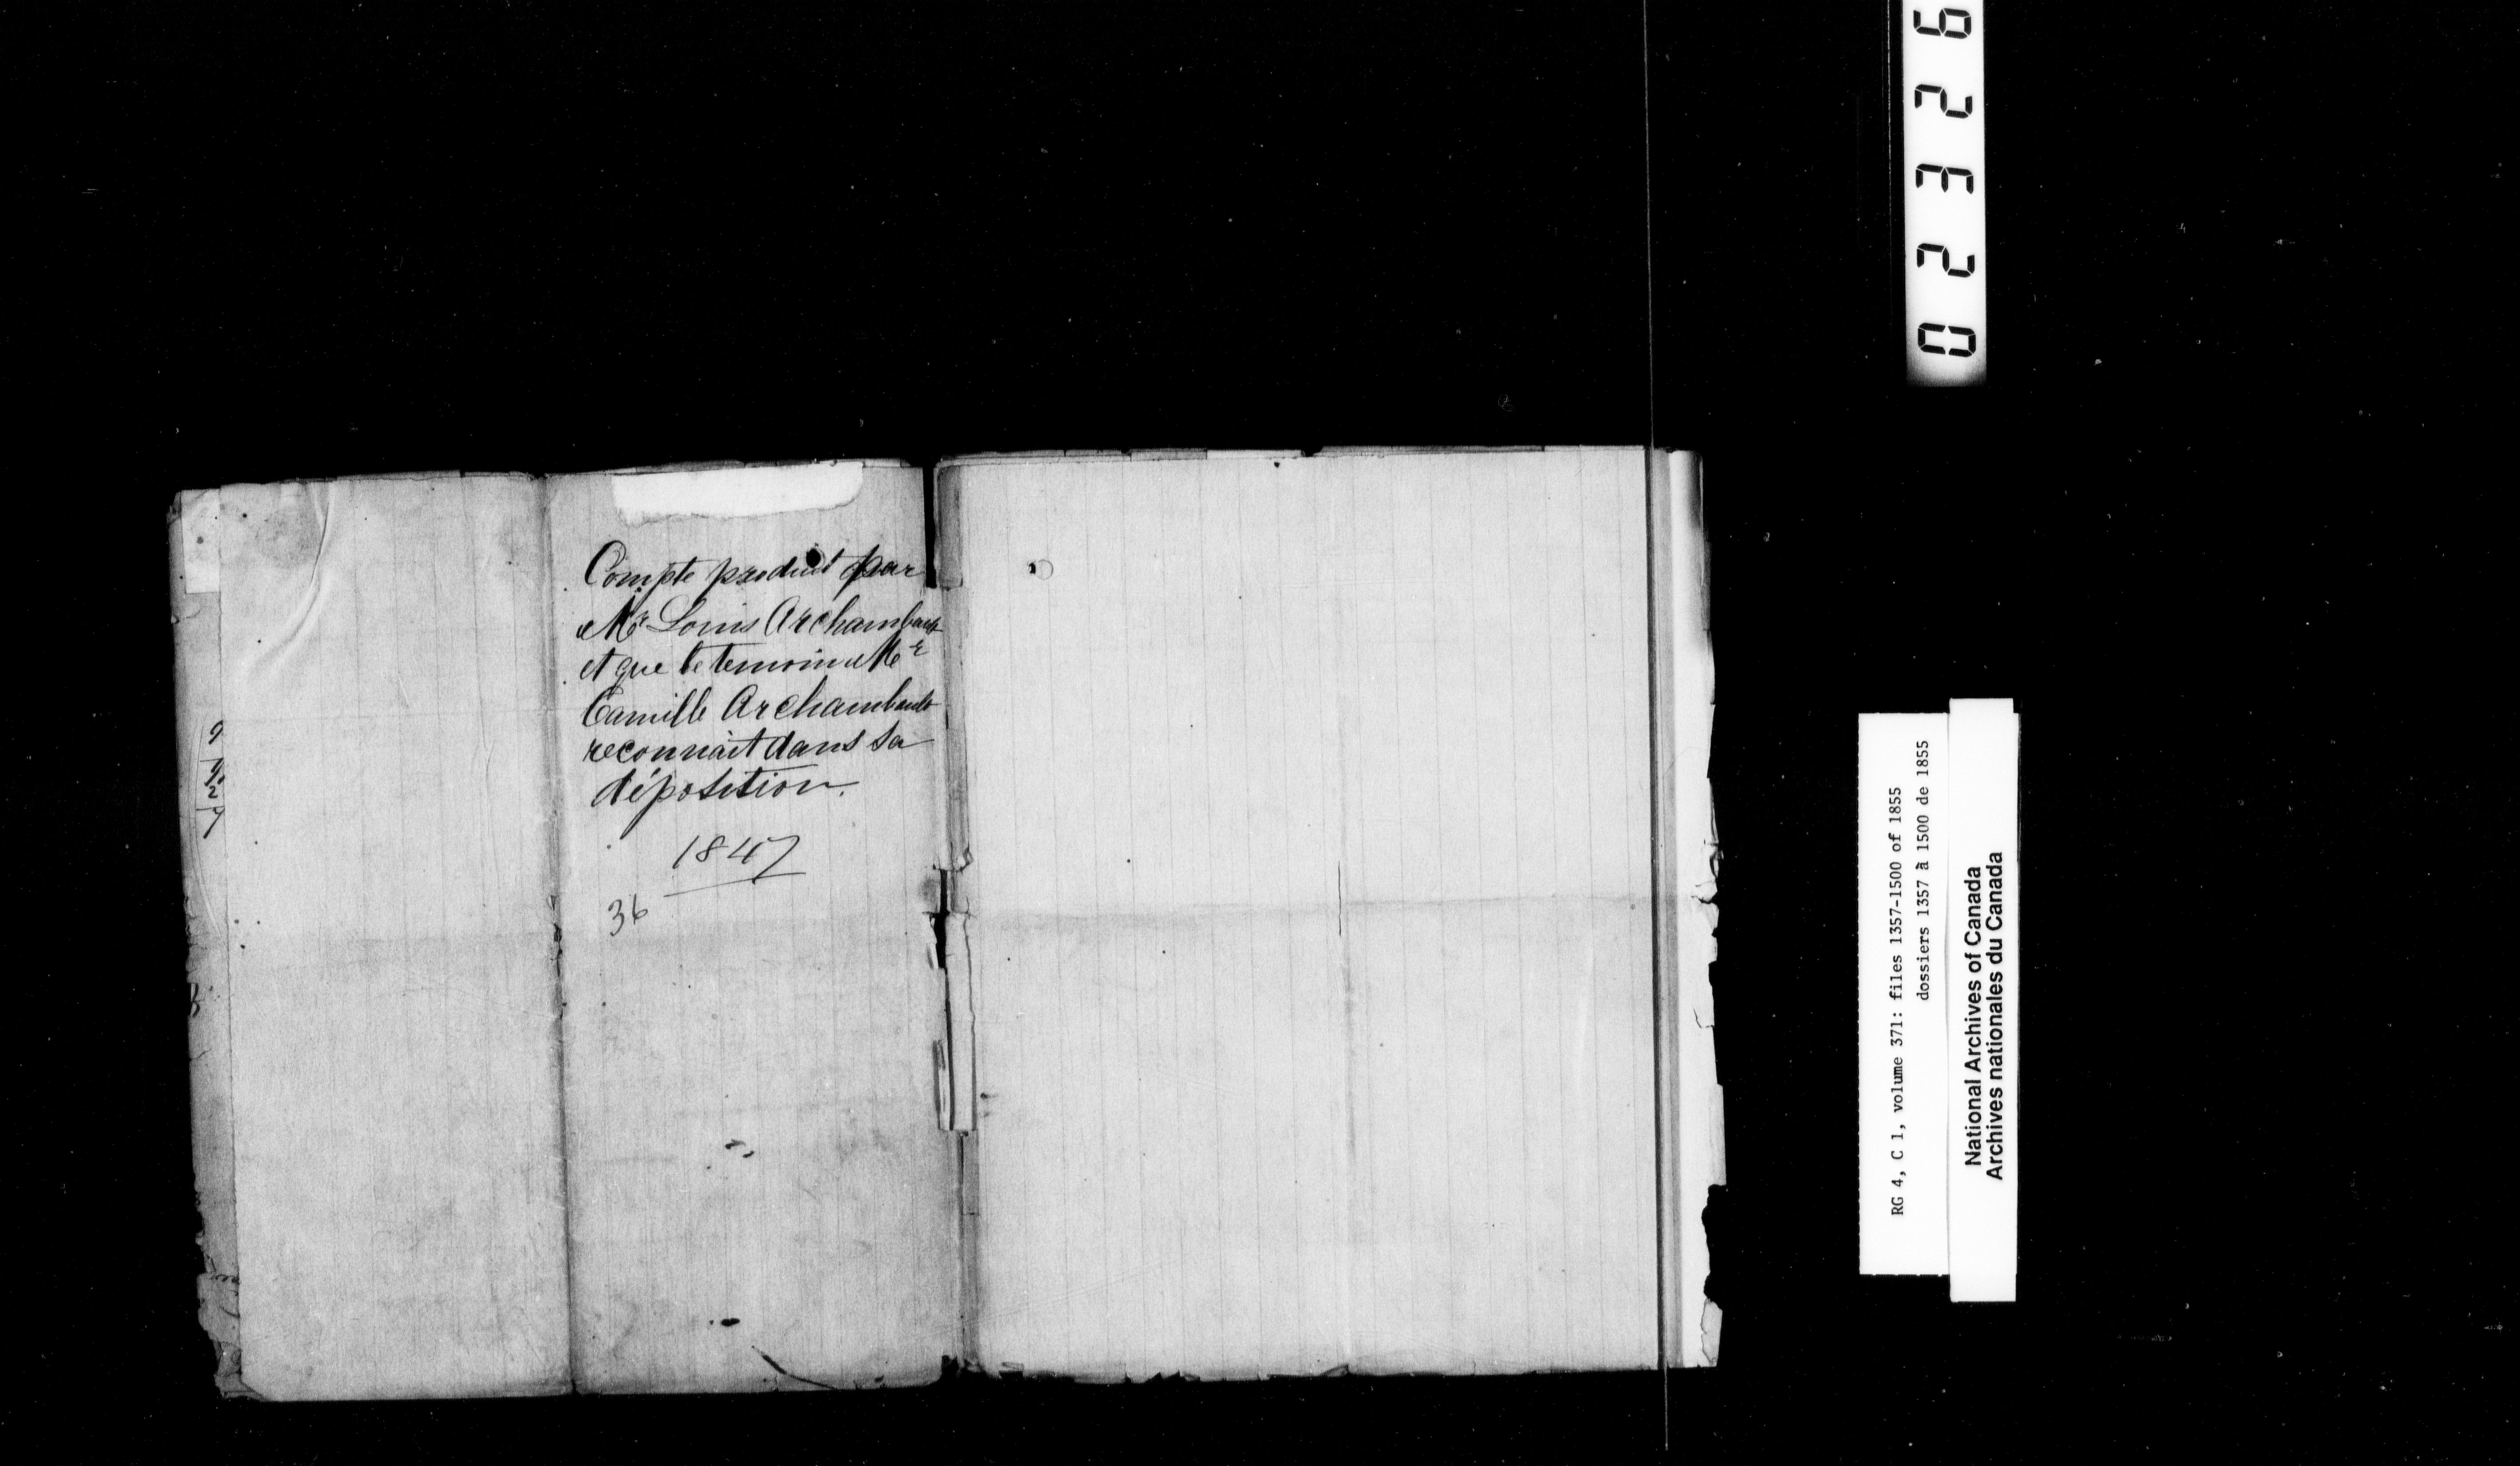 Compte produit par
Mr Louis Archambault
et que le temoin Mr
Camille Archambault
reconnait dans sa
déposition.
1847
36
02326
RG 4, C 1, volume 371: files 1357-1500 of 1855
dossiers 1357 à 1500 de 1855
National Archives of Canada
Archives nationales du Canada